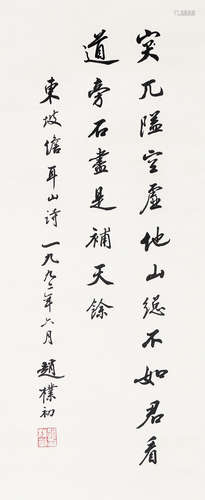 突兀隘空虛他山總不如君看
道旁石盡是補天餘
東坡儋耳山詩一九九二年六月
趙樸初